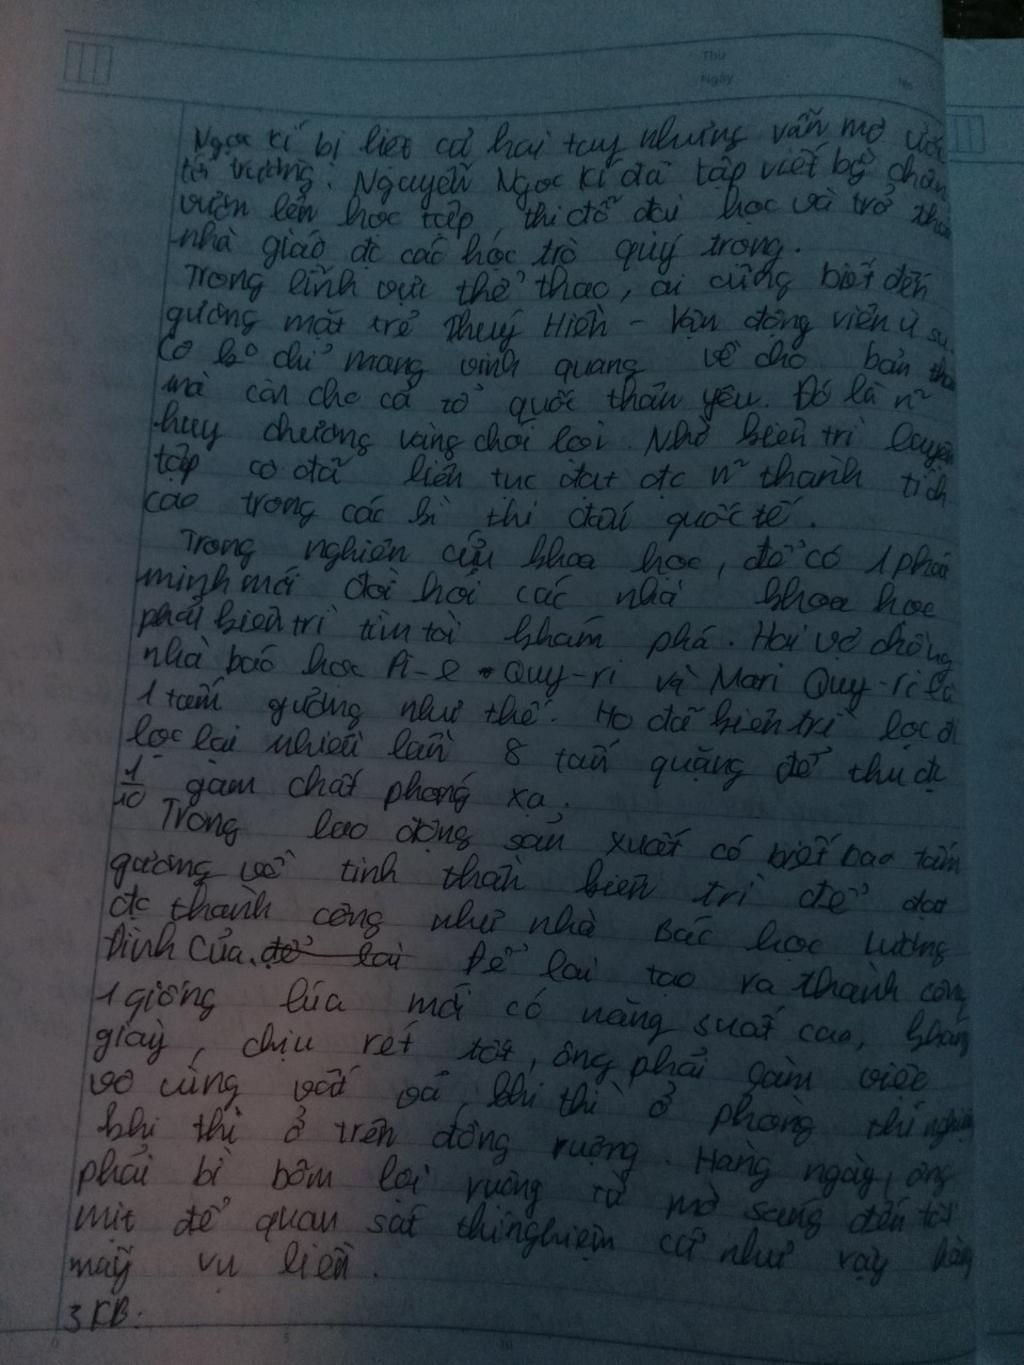 Thứ
Ngày
Ngọc Kí bị liệt cả hai tay nhưng vẫn mơ ước
tới trường. Nguyễn Ngọc Kí đã tập viết bg chân
vươn lên học tập, thi đỗ đại học và trở thà
nhà giáo đc các học trò quý trọng.
Trong lĩnh vực thể thao, ai cũng biết đến
gương mặt trẻ Thuý Hiền - Vận động viên
Cô ko chỉ mang vinh quang về cho bản thâ
mà còn cho cả tổ quốc thân yêu. Đó là n~
huy chương vàng chói lọi. Nhờ kiên trì luyện
tập cô đã liên tục đạt đc n~ thành tích
cao trong các kì thi đấu quốc tế.
Trong nghiên cứu khoa học, để có 1 phá
minh mới đòi hỏi các nhà khoa học
phải kiên trì tìm tòi khám phá. Hai vợ chồng
nhà bác học Pi-e Quy-ri và Mari Quy-ri là
1 tấm gương như thế. Họ đã kiên trì lọc đi
lọc lại nhiều lần 8 tấn quặng để thu đc
1/10 gam chất phóng xạ.
Trong lao động sản xuất có biết bao tấm
gương về tinh thần kiên trì để đạt
đc thành công như nhà bác học Lương
Đình Của. để lai Để lai tạo ra thành công
1 giống lúa mới có năng suất cao, khán
giầy, chịu rét tốt, ông phải làm việc
vô cùng vất vả, khi thì ở phòng thí nghiệm
khi thì ở trên đồng ruộng. Hàng ngày, ông
phải bì bõm lội ruộng từ mờ sáng đến tối
mịt để quan sát thí nghiệm cứ như vậy hàng
mấy vụ liền.
3 KB: